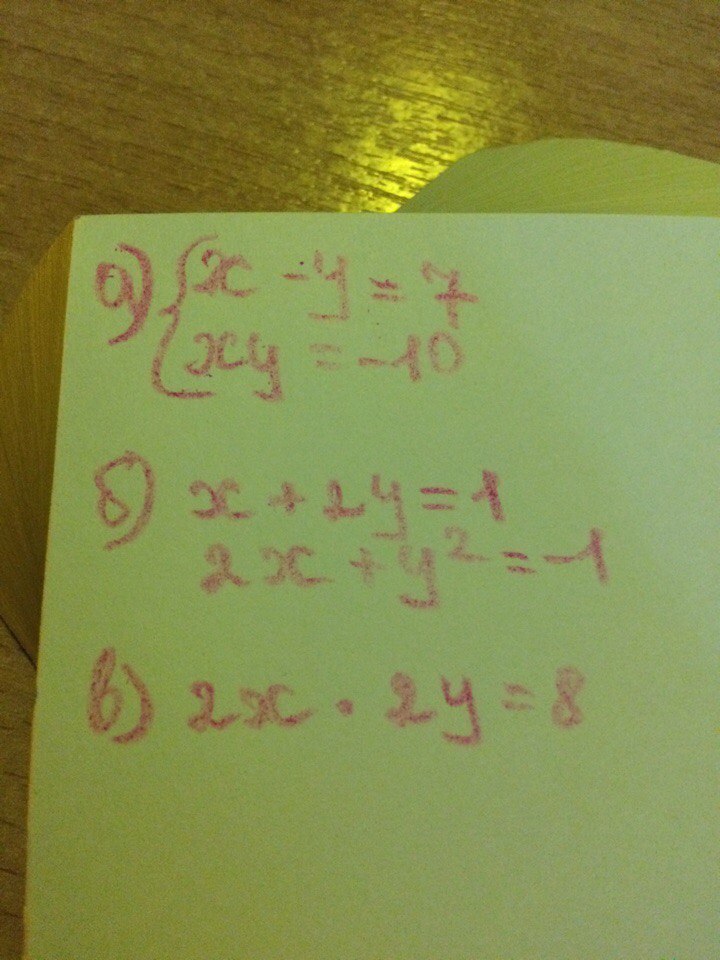 а) { x - y = 7
xy = -10
б) x + 2y = 1
2x + y² = -1
в) 2x · 2y = 8